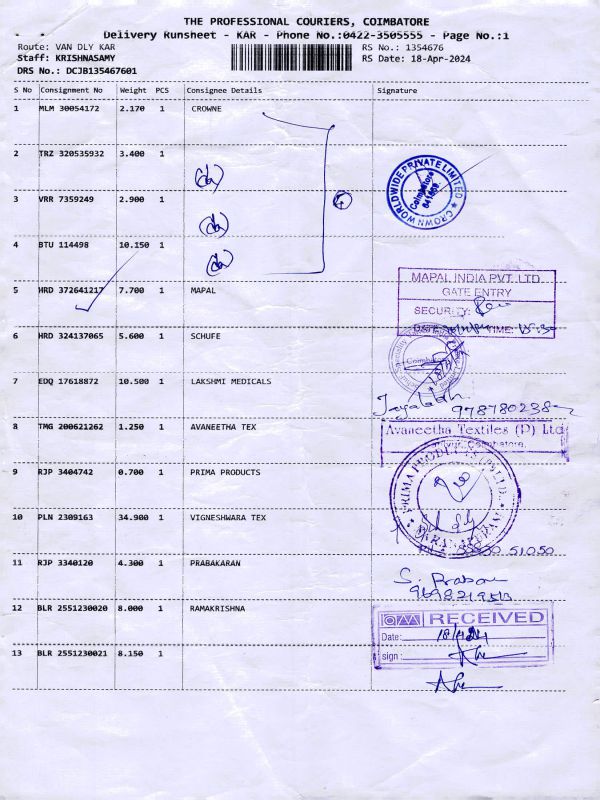 THE PROFESSIONAL COURIERS, COIMBATORE
Delivery Runsheet - KAR - Phone No.:0422-3505555 - Page No.:1
Route: VAN DLY KAR RS No.: 1354676
Staff: KRISHNASAMY RS Date: 18-Apr-2024
DRS No.: DCJB135467601
S No Consignment No Weight PCS Consignee Details Signature
1 MLM 30054172 2.170 1 CROWNE
2 TRZ 320535932 3.400 1
CROWN WORLDWIDE PRIVATE LIMITED
Coimbatore
3 VRR 7359249 2.900 1
4 BTU 114498 10.150 1
5 HRD 372641217 7.700 1 MAPAL
MAPAL INDIA PVT. LTD
GATE ENTRY
SECURITY:
DATE: TIME:
6 HRD 324137065 5.600 1 SCHUFE
Coimbatore
7 EDQ 17618872 10.500 1 LAKSHMI MEDICALS
8 TMG 200621262 1.250 1 AVANEETHA TEX
Avaneetha Textiles (P) Ltd
Coimbatore.
9 RJP 3404742 0.700 1 PRIMA PRODUCTS
PRIMA PRODUCTS (P) LTD.
10 PLN 2309163 34.900 1 VIGNESHWARA TEX
11 RJP 3340120 4.300 1 PRABAKARAN
12 BLR 2551230020 8.000 1 RAMAKRISHNA
RECEIVED
Date: 18/4/24
sign :
13 BLR 2551230021 8.150 1